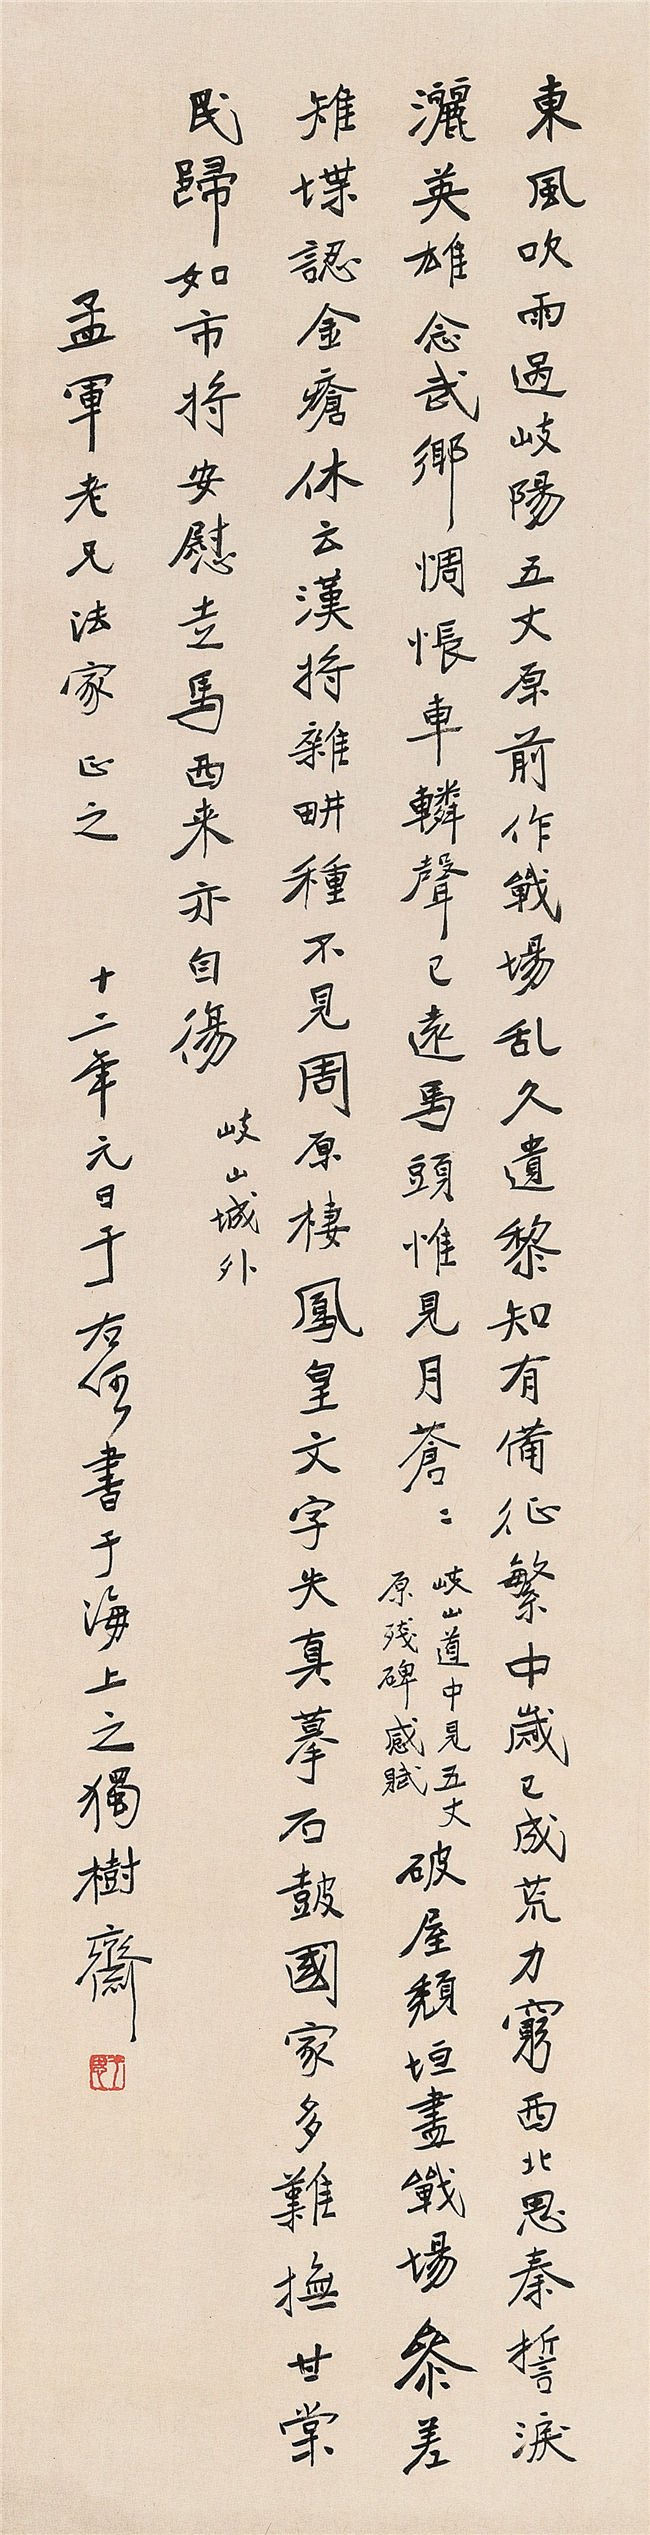 東風吹雨過岐陽五丈原前作戰場乱久遺黎知有備征繁中歲已成荒力窮西北思秦誓淚
灑英雄念武鄉惆悵車轔聲已遠馬頭惟見月蒼〻
岐山道中見五丈
原残碑感賦
破屋頹垣盡戰場參差
雉堞認金瘡休云漢將雜畊種不見周原棲鳳皇文字失真摹石鼓國家多難撫甘棠
民歸如市将安慰走馬西来亦自傷
岐山城外
孟軍老兄法家正之 十二年元日于右任書于海上之獨樹齋